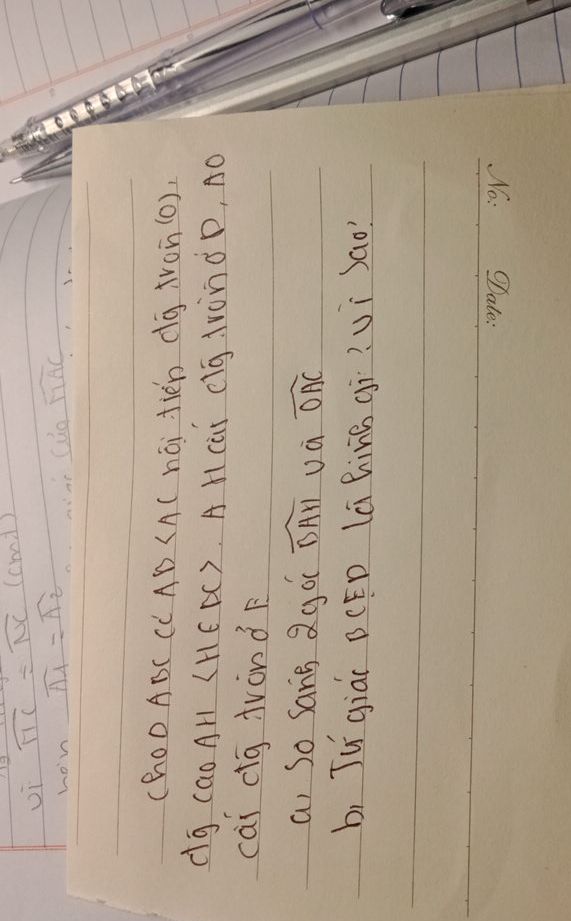 No: Date:
Cho Δ ABC có AB < AC nội tiếp đg tròn (O),
đg cao AH <H ∈ BC>. AH cắt đg tròn ở D, AO
cắt đg tròn ở E
a, So sánh 2 góc \widehat{BAH} và \widehat{OAC}
b, Tứ giác BCED là hình gì? Vì sao?
vì \widehat{MC} = \widehat{NC} (cmt)
\widehat{A1} = \widehat{A2}
giác của \widehat{MAC}